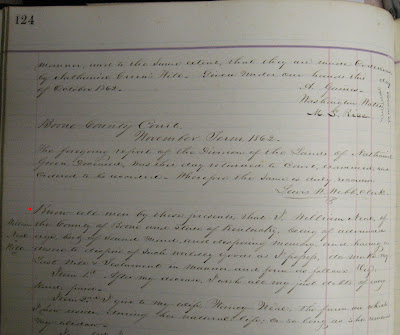 124
manner, and to the same extent, that they are made
by Nathaniel Green's Will. Given under our hands this
of October 1862.
A.
Washington Watts
M. S. Rice
Boone County Court
November Term 1862
The foregoing report of the Division of the Lands of Nathaniel
Green Deceased, was this day returned to Court, examined, and
ordered to be recorded. Wherefore the same is duly recorded
Lewis H. Webb, Clerk
Know all men by these presents that I, William Neal of
the County of Boone and State of Kentucky, being of advanced
age, but of sound mind and disposing memory, and having
desire to dispose of such worldly goods as I possess, do make my
last Will & Testament in manner and form as follows Viz.
Item 1st After my decease, I wish all my just debts of any
kind, paid.
Item 2nd I give to my wife Neal, the farm on which
I now reside during her natural life, or so long as she remains
my widow.